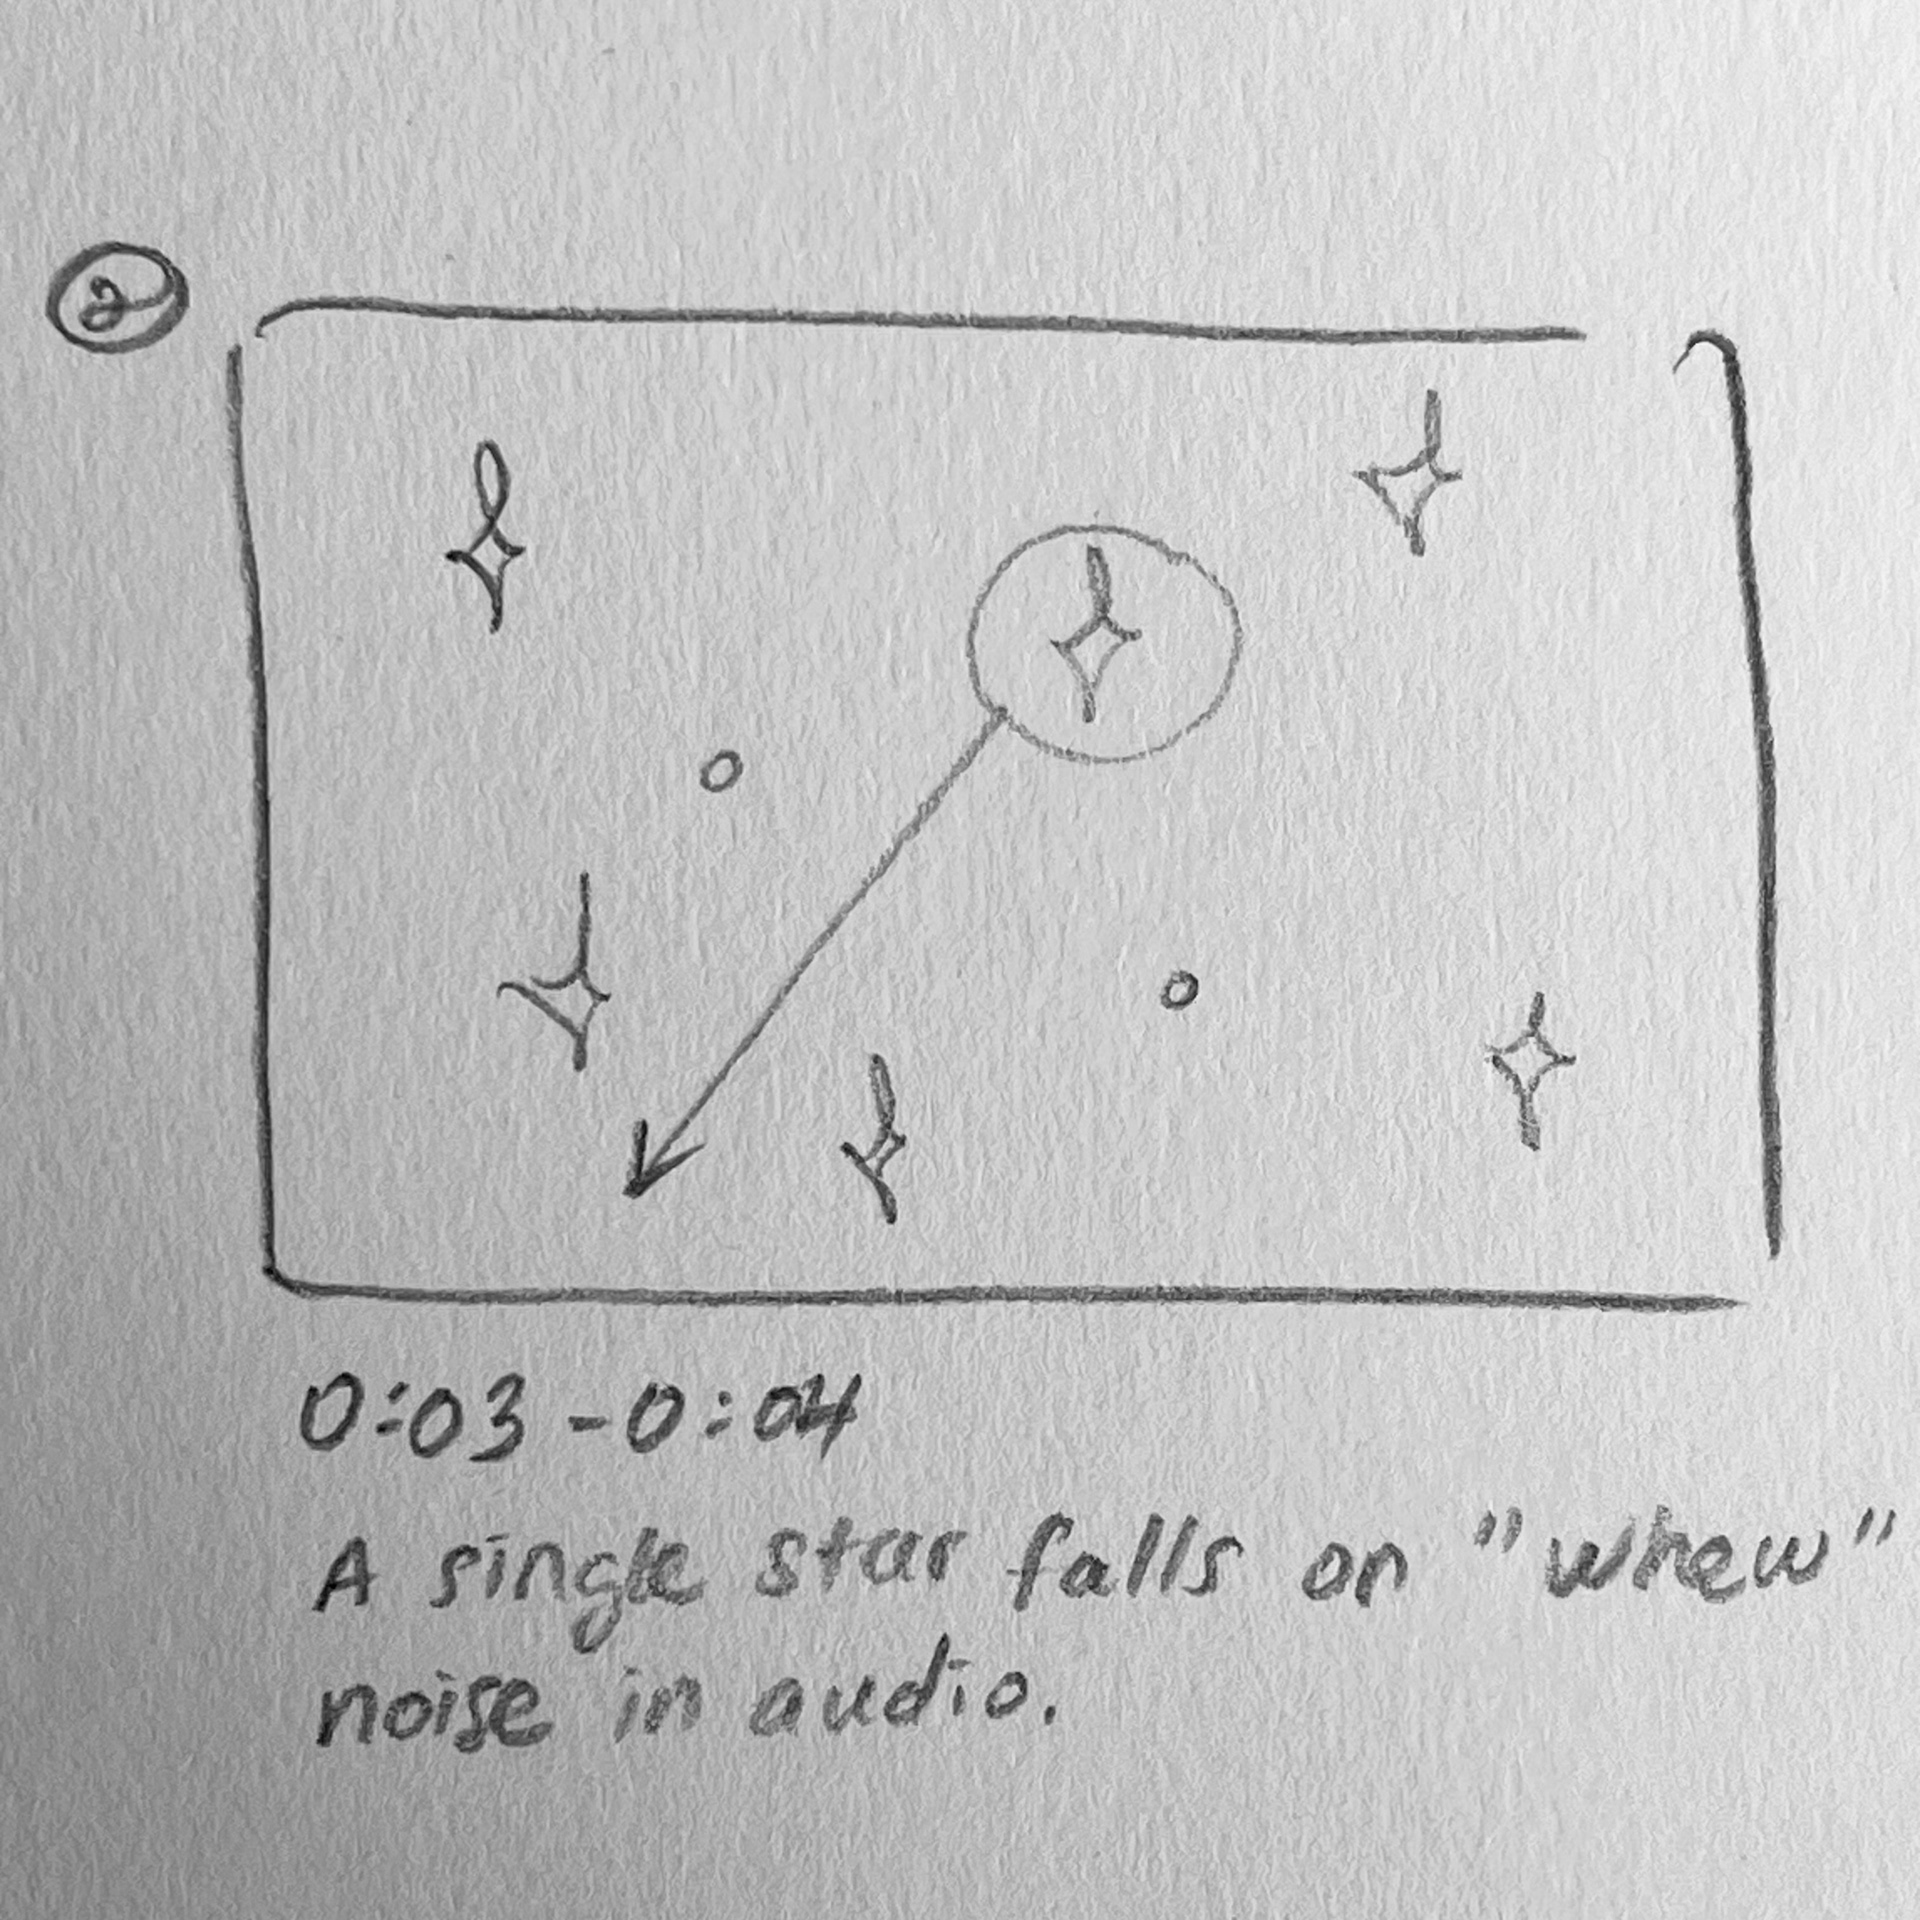 2
0:03 - 0:04
A single star falls on "whew"
noise in audio.